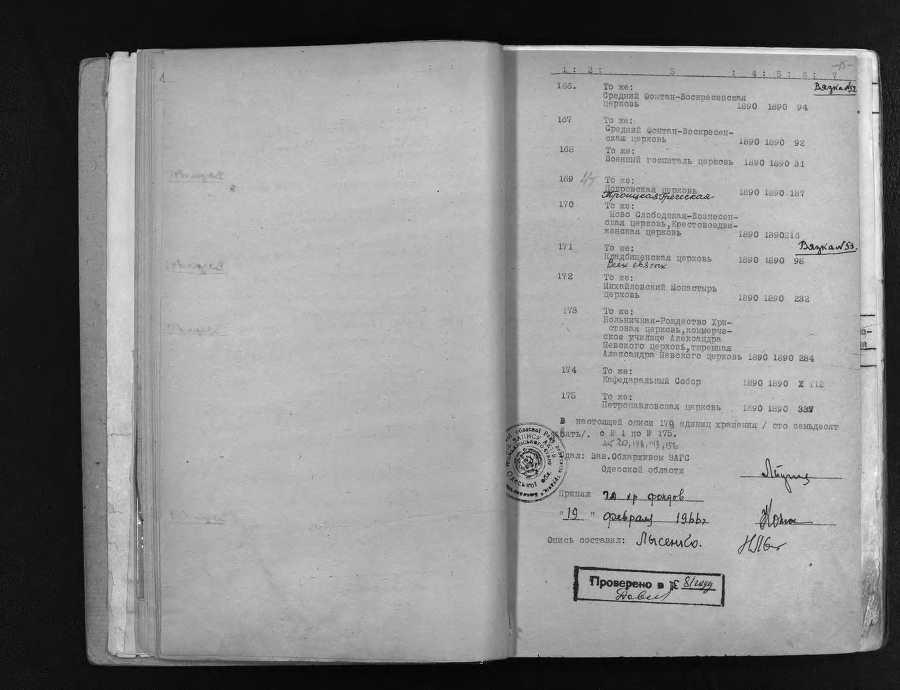 -15-
1: 2: 3 : 4: 5: 6: 7
Вязка №53
166. То же:
Средний Фонтан-Воскресенская
церковь 1890 1890 94
167 То же:
Средний Фонтан-Воскресен-
ская церковь 1890 1890 92
168 То же:
Военный госпиталь церковь 1890 1890 31
169 То же:
Покровская церковь 1890 1890 187
Троицкая Греческая
170 То же:
Ново Слободская-Вознесен-
ская церковь, Крестовоздви-
женская церковь 1890 1890 216
Вязка №53.
171 То же:
Кладбищенская церковь 1890 1890 98
Всех святых
172 То же:
Михайловский Монастырь
церковь 1890 1890 232
173 То же:
Больничная-Рождество Хри-
стовая церковь, коммерче-
ское училище Александра
Невского церковь, тюремная
Александра Невского церковь 1890 1890 284
174 То же:
Кафедаральный Собор 1890 1890 X 112
175 То же:
Петропавловская церковь 1890 1890 337
В настоящей описи 179 единиц хранения / сто семьдесят
/. с № 1 по № 175.
Сдал: Зав.Облархивом ЗАГС
Одесской области
Принял хр фондов
" 19 " февраля 1966г
Опись составил: Лысенко.
Проверено в году